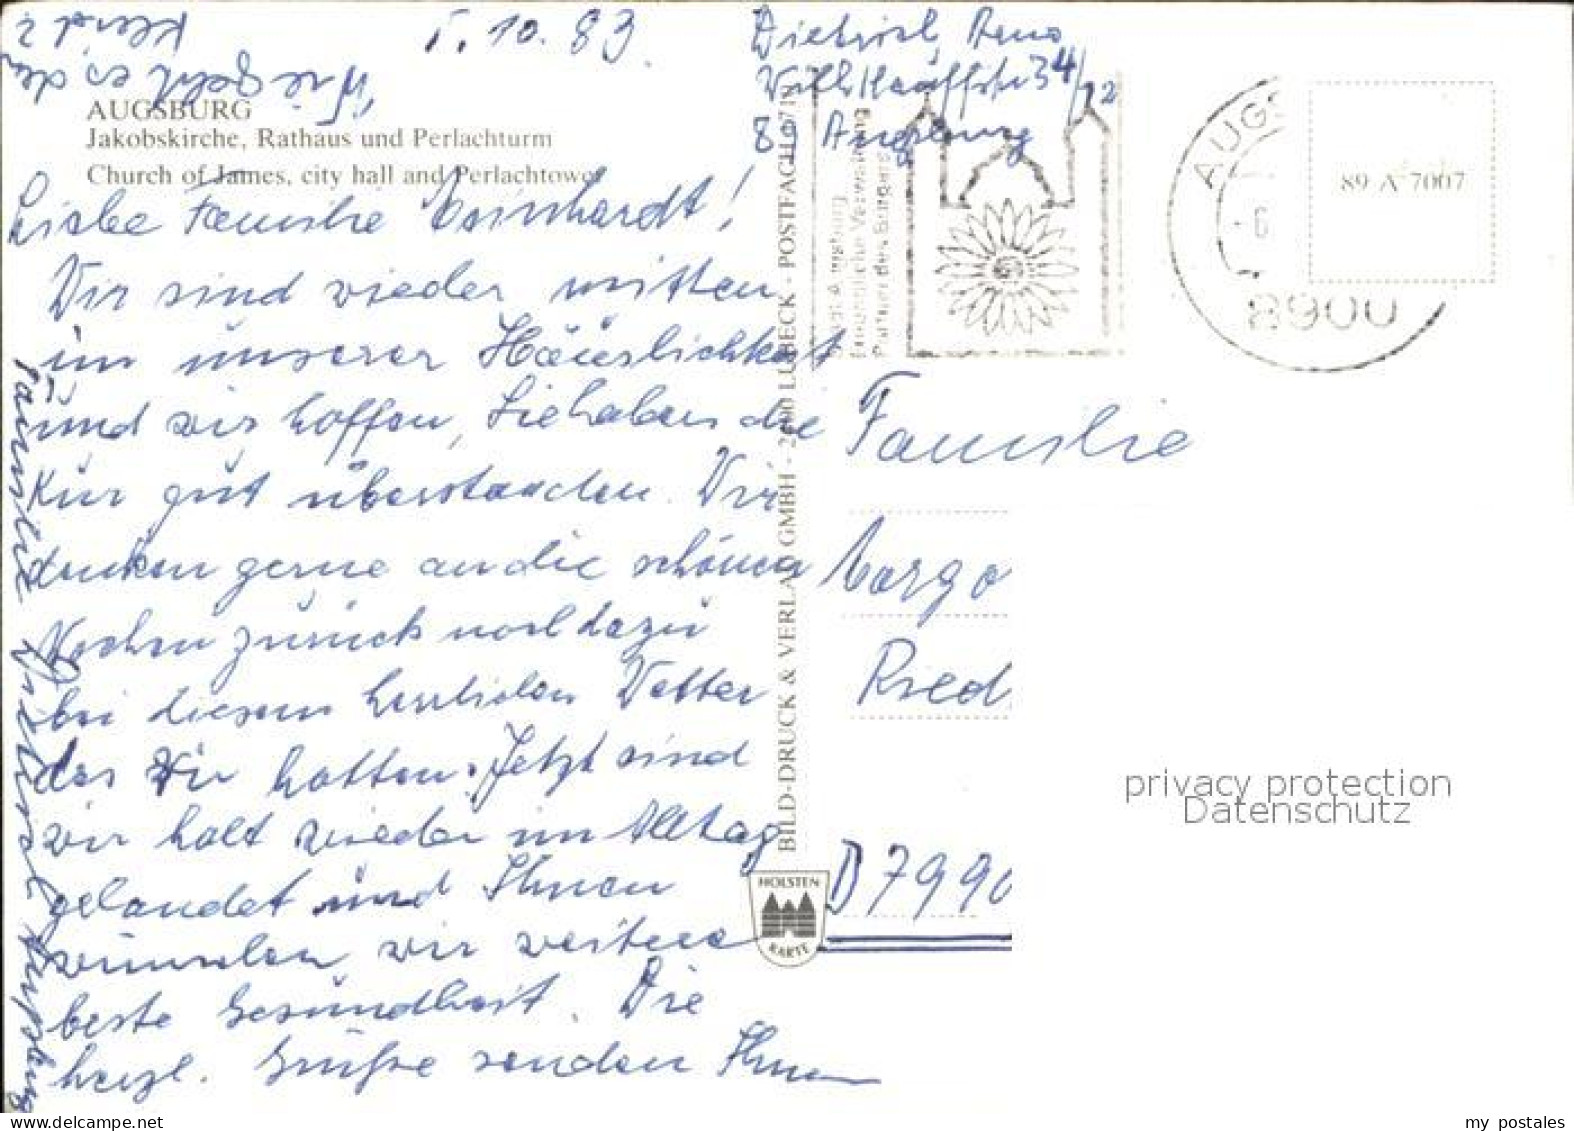 5.10.83.
Wie geht es dem
Kleid?
AUGSBURG
Jakobskirche, Rathaus und Perlachturm
Church of James, city hall and Perlachtower
Liebe Familie
Wir sind wieder mitten
in unserer Häuslichkeit
und wir hoffen, Sie haben die
Kur gut überstanden. Wir
denken gerne an die schönen
Wochen zurück noch dazu
bei diesem herrlichen Wetter
das wir hatten. Jetzt sind
wir halt wieder im Alltag
gelandet und Ihnen
wünschen wir weitere
beste Gesundheit. Die
herzl. Grüße senden Ihnen
Familie Dietrich Augsburg
BILD-DRUCK & VERLAG GMBH - 2400 LÜBECK - POSTFACH
HOLSTEN
KARTE
Dietrich,
89 Augsburg
Stadt Augsburg
Freundliche Verwaltung
Partner des Bürgers
AUGS
- 6
8900
89 A 7007
Familie
Ried
D 7990
privacy protection
Datenschutz
delcampe.net
my postales